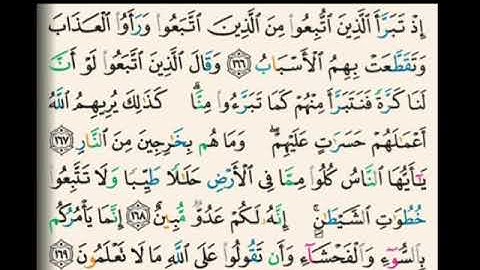 إِذْ تَبَرَّأَ ٱلَّذِينَ ٱتُّبِعُوا۟ مِنَ ٱلَّذِينَ ٱتَّبَعُوا۟ وَرَأَوُا۟ ٱلْعَذَابَ
وَتَقَطَّعَتْ بِهِمُ ٱلْأَسْبَابُ ١٦٦ وَقَالَ ٱلَّذِينَ ٱتَّبَعُوا۟ لَوْ أَنَّ
لَنَا كَرَّةً فَنَتَبَرَّأَ مِنْهُمْ كَمَا تَبَرَّءُوا۟ مِنَّا ۗ كَذَٰلِكَ يُرِيهِمُ ٱللَّهُ
أَعْمَٰلَهُمْ حَسَرَٰتٍ عَلَيْهِمْ ۖ وَمَا هُم بِخَٰرِجِينَ مِنَ ٱلنَّارِ ١٦٧
يَٰٓأَيُّهَا ٱلنَّاسُ كُلُوا۟ مِمَّا فِى ٱلْأَرْضِ حَلَٰلًا طَيِّبًا وَلَا تَتَّبِعُوا۟
خُطُوَٰتِ ٱلشَّيْطَٰنِ ۚ إِنَّهُۥ لَكُمْ عَدُوٌّ مُّبِينٌ ١٦٨ إِنَّمَا يَأْمُرُكُم
بِٱلسُّوٓءِ وَٱلْفَحْشَآءِ وَأَن تَقُولُوا۟ عَلَى ٱللَّهِ مَا لَا تَعْلَمُونَ ١٦٩